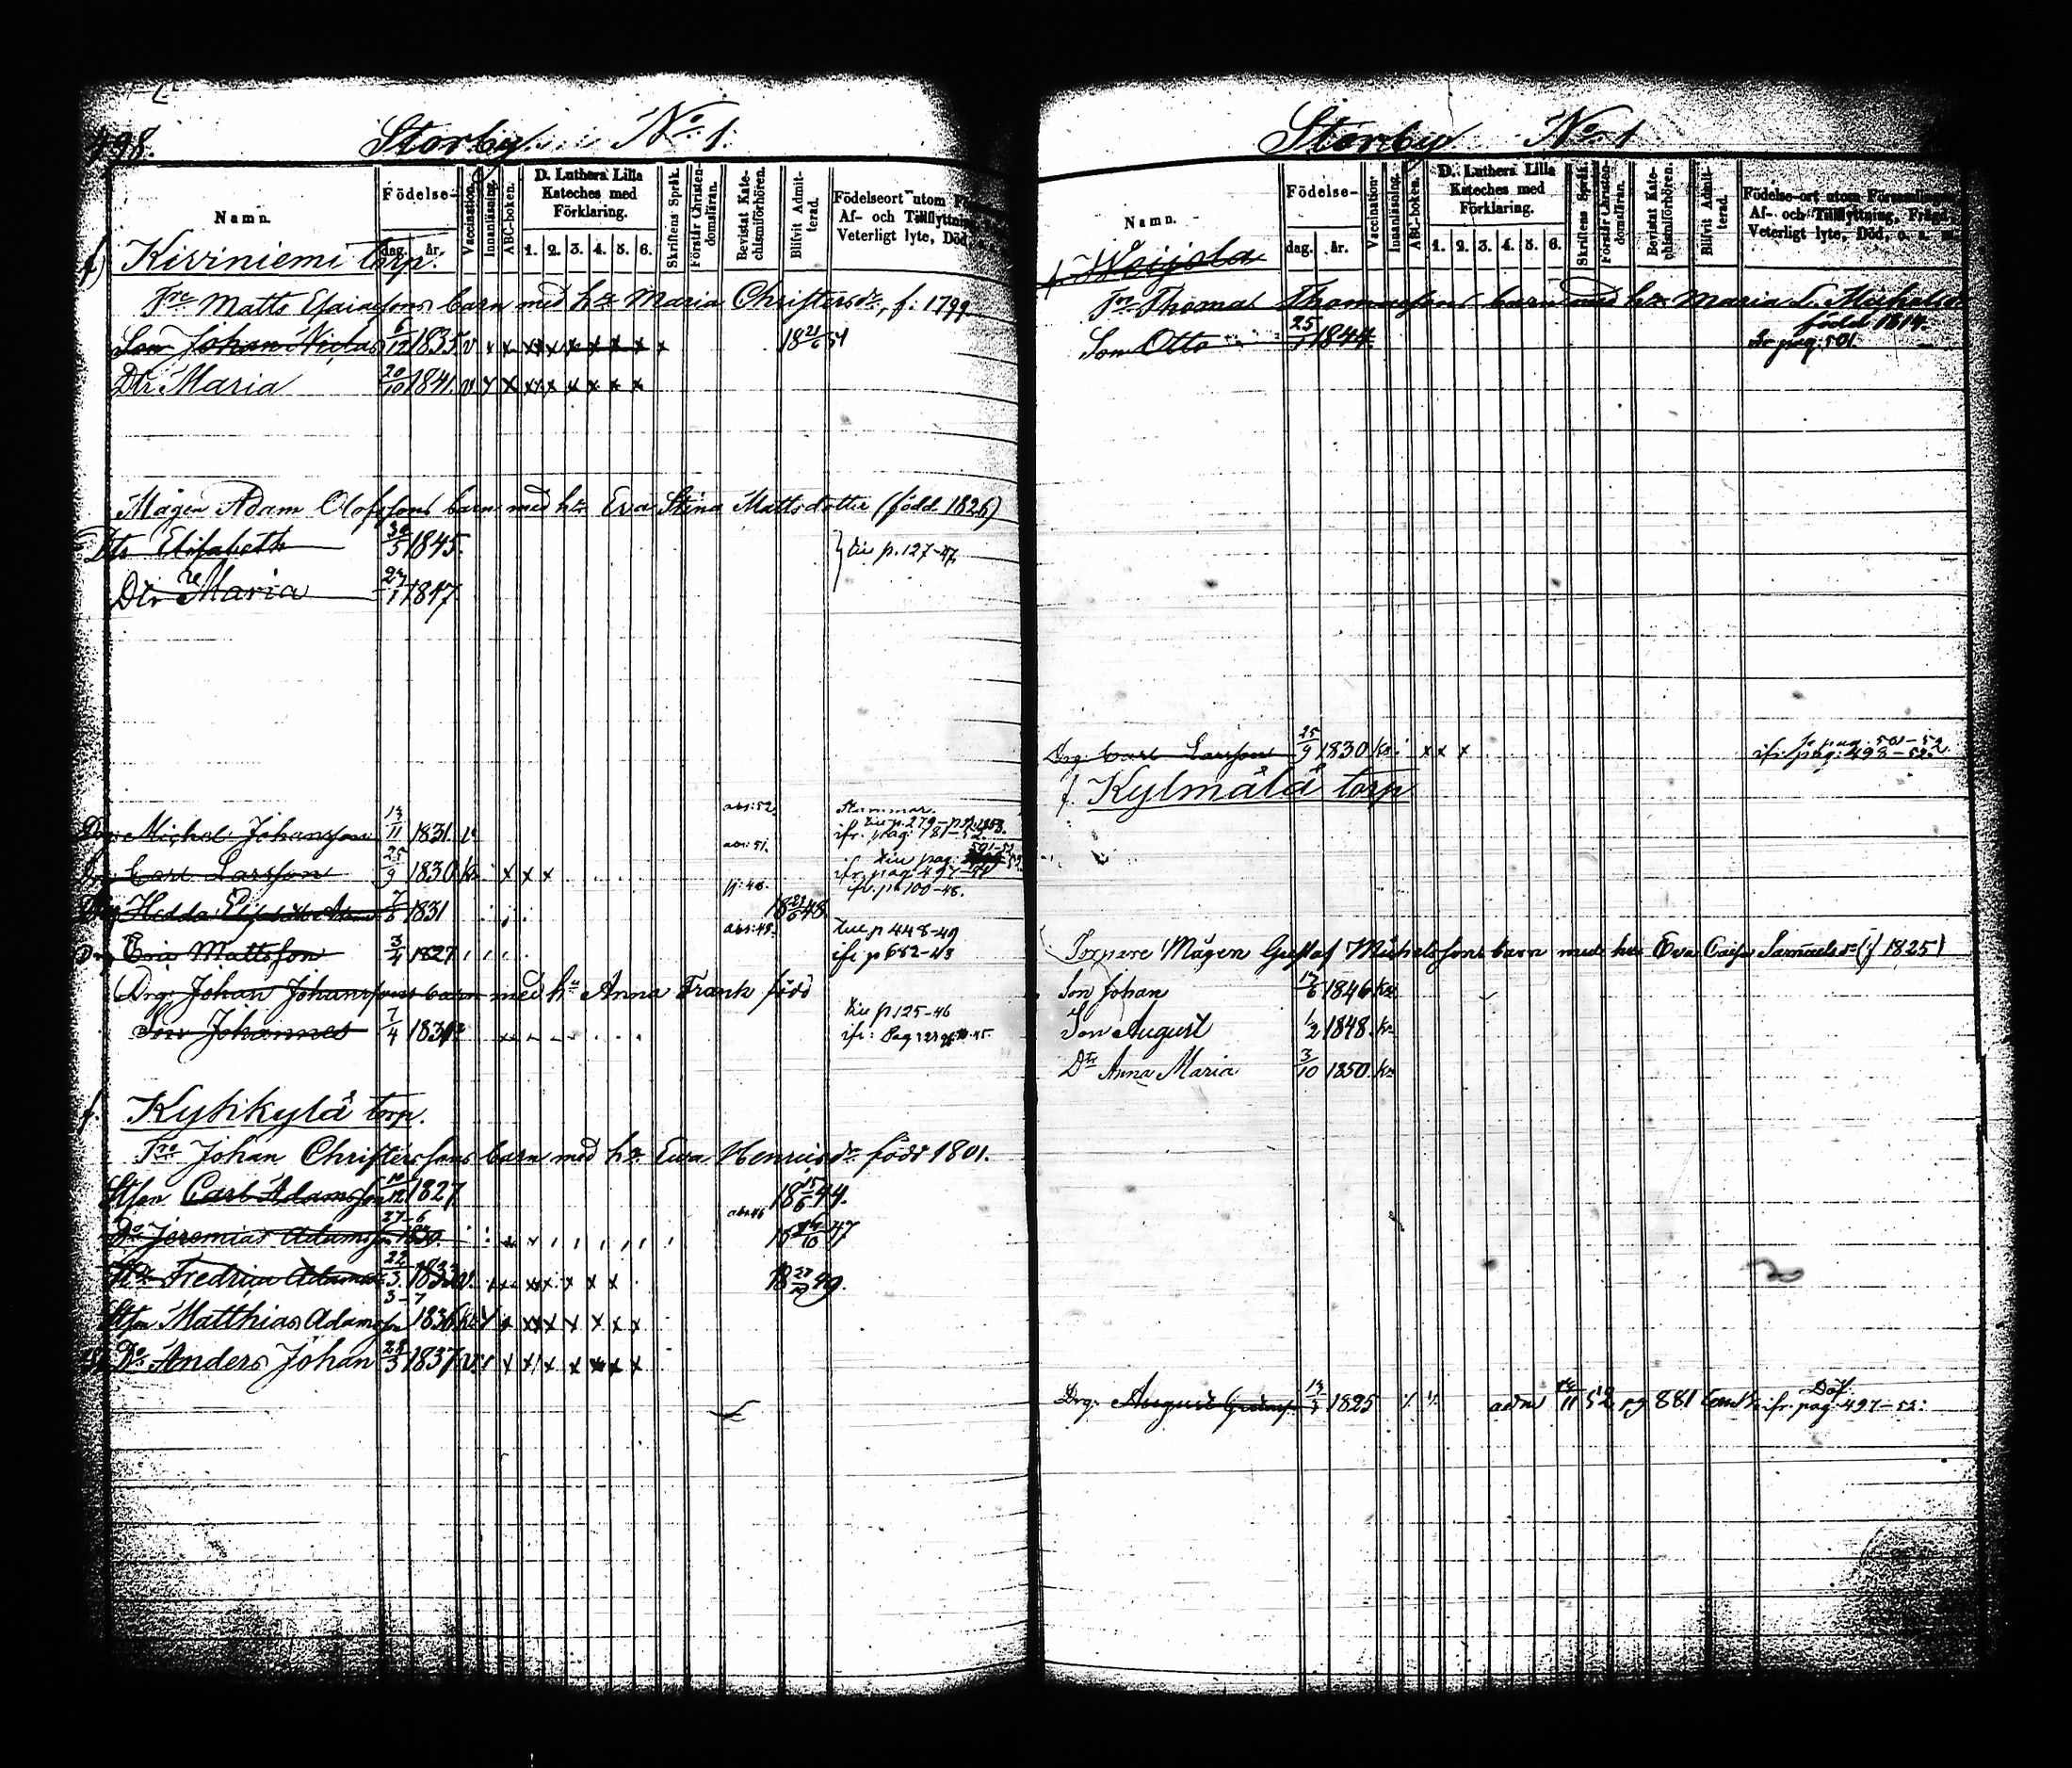 498.
Storby No 1.
Namn.
Födelse-
dag. år.
Vaccination.
Innanläsning.
ABC-boken.
D. Luthers Lilla Kateches med Förklaring.
1. 2. 3. 4. 5. 6.
Skriftens Språk.
Förstår Christendomsläran.
Bevistat Katechismiförhören.
Blifvit Admitterad.
Födelseort utom
Af- och Tillflyttning
Veterligt lyte, Död,
f) Kiviniemi torp.
Matts Esaiassons barn med h:u Maria Christersdr, f: 1799
Son Johan Niclas 6/12 1835 v x x x x x x x x 18 21/6 54
Dtr Maria 20/10 1841. v x x x x x x x x
Mågen Adam Olofssons barn med hu Eva Stina Mattsdotter (född 1826)
Dtr Elisabeth 30/5 1845. p. 127-47
Dtr Maria 1847
abs: 52.
Drg: Michel Johansson 13/11 1831. p. 279
ifr. pag: 781-52.
abs: 51.
Drg Carl Larsson 25/9 1830 x x x pag: 501-52
ifr. pag 497
ifr. p. 100-48.
Hedda 1831 18 48
abs: 49. p 448-49
Mattsson 3/4 1827 ifr p 652-43
Drg: Johan Johanssons barn med h:u Anna Frank född
p. 125-46
Son Johannes 7/4 1831
f. Kytikylä torp.
Johan Christerssons barn med h:u Ewa Henricsdr född 1801.
Stfson Carl Adamsson 10/12 1827 18 15/6 44.
abs 46
Do Jeremias Adamsson 27-6 1830 18 47
Fredrica Adamsdr 22/3 1833 x x x x x x 18 49.
Stfson Matthias Adamsson 3-7 1836 x x x x x x x
Do Anders Johan 28/3 1837 x x x x x x x
Storby No 1
Namn.
Födelse-
dag. år.
Vaccination.
Innanläsning.
ABC-boken.
D. Luthers Lilla Kateches med Förklaring.
1. 2. 3. 4. 5. 6.
Skriftens Språk.
Förstår Christendomsläran.
Bevistat Katechismiförhören.
Blifvit Admitterad.
Födelse-ort utom Församlingen,
Af- och Tillflyttning, Frägd,
Veterligt lyte, Död, o. s.
f. Weijola
Thomas Thomassons barn med h:u Maria L. Michelsdr
född 1814.
Son Otto 25/ 1844 pag: 501.
Drg: Carl Larsson 25/9 1830 x x x pag. 501-52
ifr. pag: 498-52
f. Kylmälä torp
Torpare Mågen Gustaf Michelssons barn med hu Eva Caisa Samuelsdr (f 1825)
Son Johan 1846
Son August 1/2 1848.
Dtr Anna Maria 3/10 1850.
Drg. August 1825 adm 11 52 pg 881 ifr. pag 497-52.